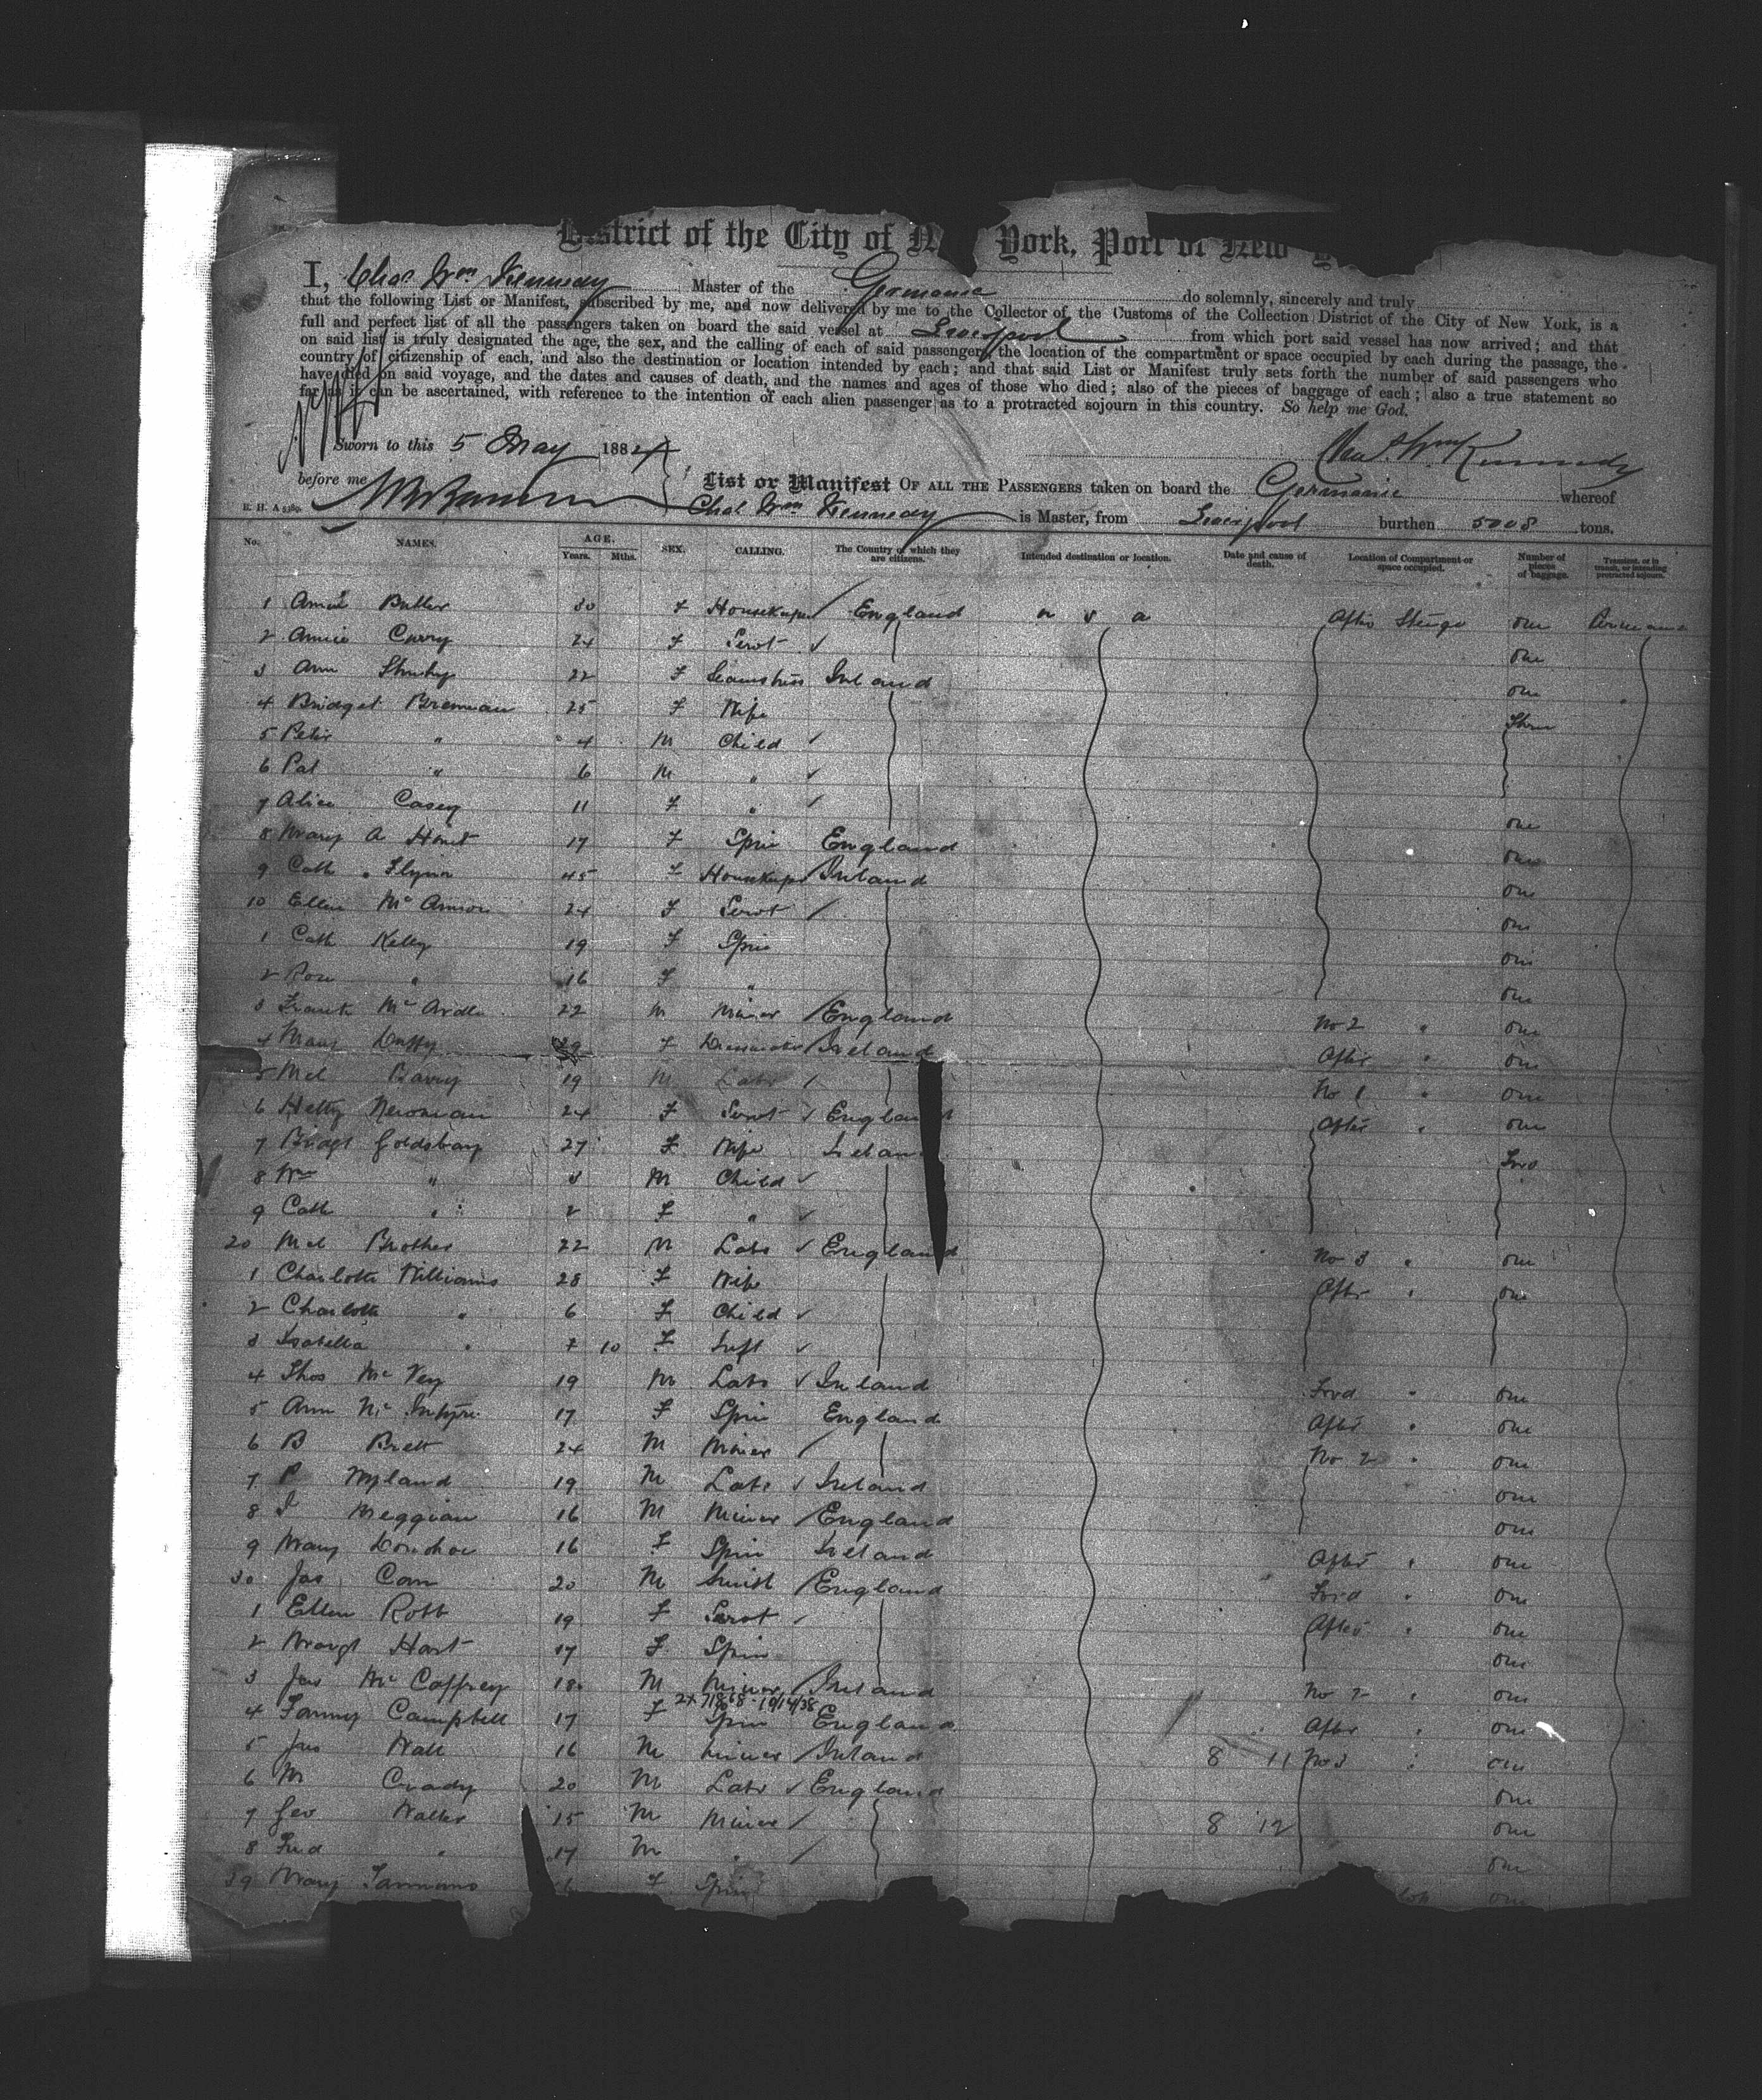 District of the City of N York, Port of New Y
I, Chas Wm Kennedy Master of the Germanic do solemnly, sincerely and truly
that the following List or Manifest, subscribed by me, and now delivered by me to the Collector of the Customs of the Collection District of the City of New York, is a
full and perfect list of all the passengers taken on board the said vessel at Liverpool from which port said vessel has now arrived; and that
on said list is truly designated the age, the sex, and the calling of each of said passengers, the location of the compartment or space occupied by each during the passage, the
country of citizenship of each, and also the destination or location intended by each; and that said List or Manifest truly sets forth the number of said passengers who
have died on said voyage, and the dates and causes of death, and the names and ages of those who died; also of the pieces of baggage of each; also a true statement so
far as it can be ascertained, with reference to the intention of each alien passenger as to a protracted sojourn in this country. So help me God.
Sworn to this 5 May 1884 Chas. Wm Kennedy
before me List or Manifest OF ALL THE PASSENGERS taken on board the Germanic whereof
Chas Wm Kennedy is Master, from Liverpool burthen 5008 tons.
No. NAMES. AGE. Years. Mths. SEX. CALLING. The Country of which they are citizens. Intended destination or location. Date and cause of death. Location of Compartment or space occupied. Number of pieces of baggage. Transient, or in transit, or intending protracted sojourn.
1 Butler 30 F Housekeeper England U S A After Steerage one
2 Annie Curry 24 F Servt one
3 Ann 22 F Seamstress Ireland one
4 Bridget Brennan 25 F Wife Three
5 Peter " 4 M Child
6 Pat " 6 M "
7 Alice Casey 11 F " one
8 Mary A Hart 17 F Spin England one
9 Cath Flynn 45 F Housekeeper Ireland one
10 Ellen Mc 24 F Servt one
1 Cath Kelly 19 F Spin one
2 Rose " 16 F " one
3 Frank Mc Ardle 22 M Miner England No 2 " one
4 Mary Duffy 29 F Dressmaker Ireland After " one
5 Mcl Barry 19 M Labr No 1 " one
6 Hetty Newman 24 F Servt England After " one
7 Bridgt Goldsbary 27 F Wife Ireland Two
8 Wm " 3 M Child
9 Cath " 2 F "
20 Mcl Brother 22 M Labr England No 3 " one
1 Charlotte Williams 28 F Wife After " one
2 Charlotte " 6 F Child
3 Isabella " 10 F Inft
4 Thos Mc Vey 19 M Labr Ireland Frwd " one
5 Ann Mc Intyre 17 F Spin England After " one
6 B Brett 24 M Miner No 2 " one
7 P Nyland 19 M Labr Ireland one
8 Meggian 16 M Miner England one
9 Mary Donohoe 16 F Spin Ireland After " one
30 Jas 20 M Smith England Frwd " one
1 Ellen Robb 19 F Servt After " one
2 Margt Hart 17 F Spin one
3 Jas Mc Caffrey 18 M Miner Ireland No 2 " one
2x 71868 - 10/14/38
4 Fanny Campbell 17 F Spin England After " one
5 Jas Wall 16 M Miner Ireland 8 11 No 3 " one
6 M Crady 20 M Labr England one
7 Geo Walter 15 M Miner 8 12 one
8 Fred " 17 M " one
39 Mary F Spin one